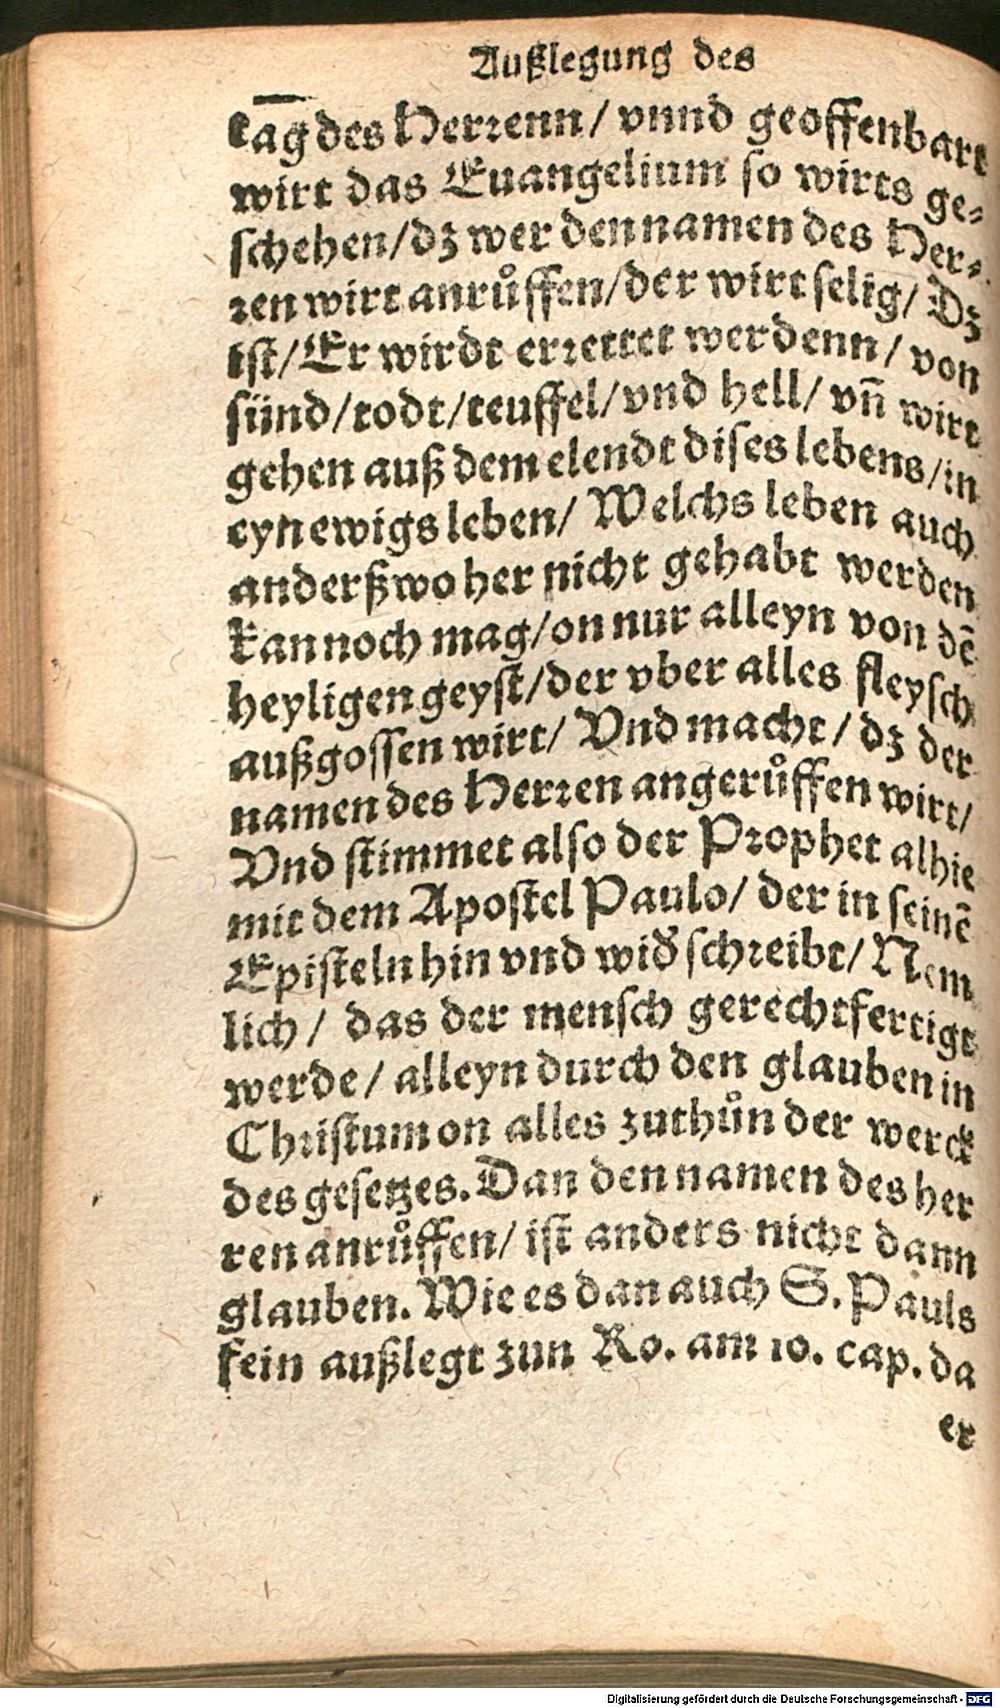 Außlegung des
tag des Herꝛenn/ vnnd geoffenbart
wirt das Euangelium so wirts ge-
schehen/dz wer den namen des Her-
ꝛen wirt anrůffen/der wirt selig/ Dz
ist/Er wirdt erꝛettet werdenn/ von
sünd/todt/teuffel/vnd hell/ vn̄ wirt
gehen auß dem elendt dises lebens/in
eyn ewigs leben/ Welchs leben auch
anderßwo her nicht gehabt werden
kan noch mag/on nur alleyn von dē
heyligen geyst/der vber alles fleysch
außgossen wirt/ Vnd macht/ dz der
namen des Herꝛen angerůffen wirt/
Vnd stimmet also der Pꝛophet alhie
mit dem Apostel Paulo/ der in seinē
Episteln hin vnd wiđ schꝛeibt/ Nem
lich/ das der mensch gerechtfertigt
werde/ alleyn durch den glauben in
Chꝛistum on alles zuthůn der werck
des gesetzes. Dan den namen des her
ren anrůffen/ ist anders nicht dann
glauben. Wie es dan auch S. Pauls
fein außlegt zun Ro. am 10. cap. da
er
Digitalisierung gefördert durch die Deutsche Forschungsgemeinschaft - DFG